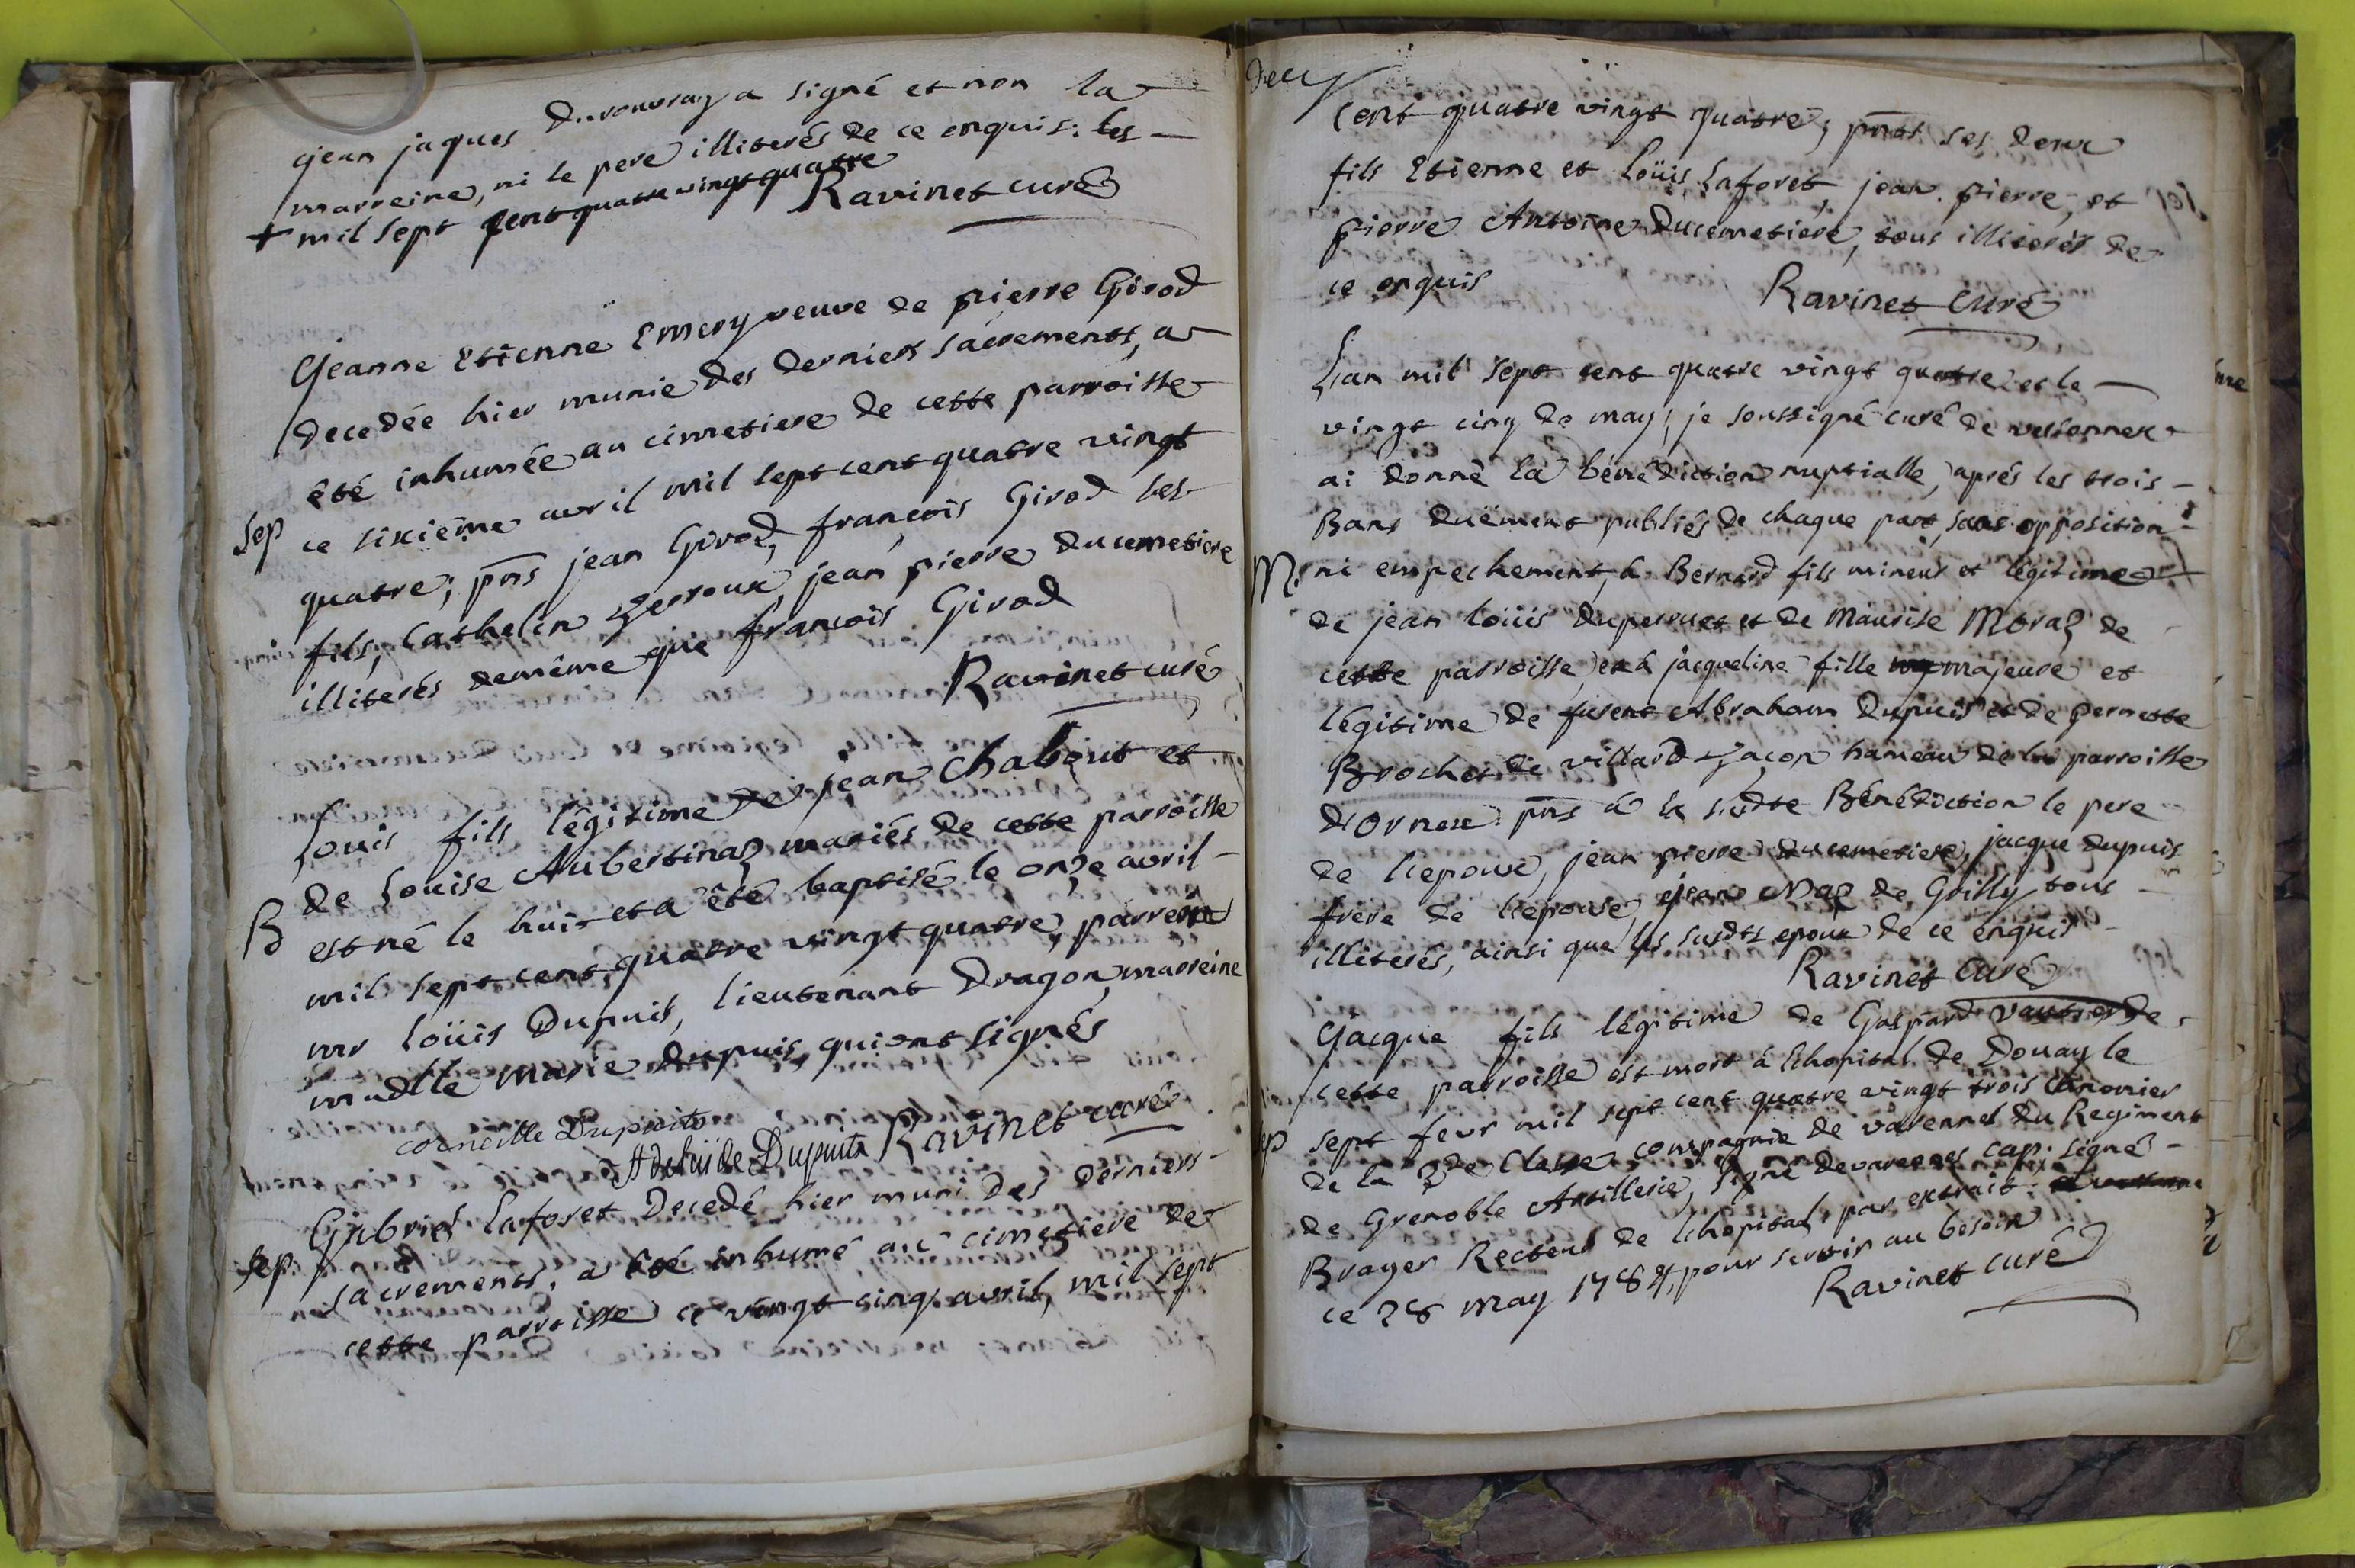 jean jaques Durouvray a signé et non la
marreine, ni le pere illiterés de ce enquis. les
+ mil sept cent quatre vingt quatre
Ravinet curé
Jeanne Etienne Emery veuve de pierre Girod
decedée hier munie des derniers sacrements, a
été inhumée au cimetiere de cette parroisse
Sep ce sixiême avril mil sept cent quatre vingt
quatre; pnts jean Girod, françois Girod ses
fils, Cathelin Perroux, jean pierre Ducemetiere
illiterés demême que françois Girod
Ravinet curé
Louis fils légitime de jean Chabout et
de Louise Aubertinaz mariés de cette parroisse
B est né le huit et a été baptisé le onze avril
mil sept cent quatre vingt quatre, parrein
mr Loüis Dupuis, lieutenant Dragon, marreine
madlle marie dupuis, qui ont signés
corneille Dupuits
Adelaïde Dupuits Ravinet curé
Gabriel Laforet Decedé hier muni des derniers
Sep. sacrements, a été inhumé au cimetiere de
cette parroisse ce vingt cinq avril, mil sept
cent quatre vingt quatre; pnts ses deux
fils Etienne et Loüis Laforet, jean pierre, et
pierre Antoine Ducemetiere, tous illiterés de
ce enquis
Ravinet Curé
Lan mil sept cent quatre vingt quatre et le
vingt cinq de may; je soussigné curé de versonnex
ai donné la bénédiction nuptialle, aprés les trois
Bans duëment publiés de chaque part, sans opposition
M. ni empechement, à Bernard fils mineur et légitime
de jean loüis Duperruet et de Maurise Moraz de
cette parroisse, et à jacqueline fille majeure et
légitime de furent Abraham Dupuis et de pernette
Brochet de villard hameau de la parroisse
d'Ornex. pns à la sudte Bénédiction le pere
de l'epoux, jean pierre ducemetiere, jacque dupuis
frere de l'epouse, jean Maz de Grilly tous
illiterés, ainsi que les susdts epoux de ce enquis
Ravinet Curé
Jacque fils légitime de Gaspard vautier de
cette parroisse est mort à l'hopital de Douay le
Sep sept fevr mil sept cent quatre vingt trois canonier
de la 2de Classe compagnie de varennes du Regiment
de Grenoble Artillerie, signé devarennes cap. signé
Brayer Recteur de l'hopital, par extrait.
ce 28 may 1784, pour servir au besoin
Ravinet curé